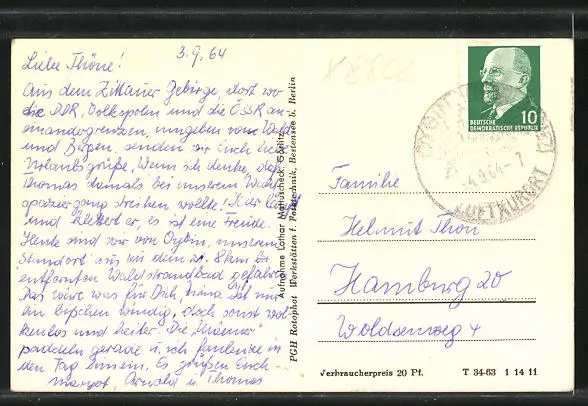 3.9.64
Liebe Thöne!
Aus dem Zittauer Gebirge, dort wo
die DDR, Volkspolen und die ČSSR an-
einandergrenzen, umgeben vom Wald
und Bergen, senden wir Euch liebe
Urlaubsgrüße. Wenn ich denke, daß
Thomas damals bei unserem Wald-
spaziergang streiken wollte! Jetzt
und klettert er, es ist eine Freude.
Heute sind wir von Oybin, unserem
Standort aus zu dem 8 km
entfernten Waldstrandbad gefahren.
Das wäre was für Dich, Nina! Ist nur
ein bischen windig, doch sonst wol-
kenlos und heiter. Die "Männer"
paddeln gerade u. ich faulenze in
den Tag hinein. Es grüßen Euch
Margot, Arnold u. Thomas
Aufnahme Lothar Matuscheck, Görlitz
PGH Rotophot Werkstätten f. Fototechnik, Bestensee b. Berlin
10
DEUTSCHE
DEMOKRATISCHE REPUBLIK
-4.9.64-7
LUFTKURORT
Familie
Helmut Thön
Hamburg 20
Woldsenweg 4
Verbraucherpreis 20 Pf.
T 34-63 1 14 11